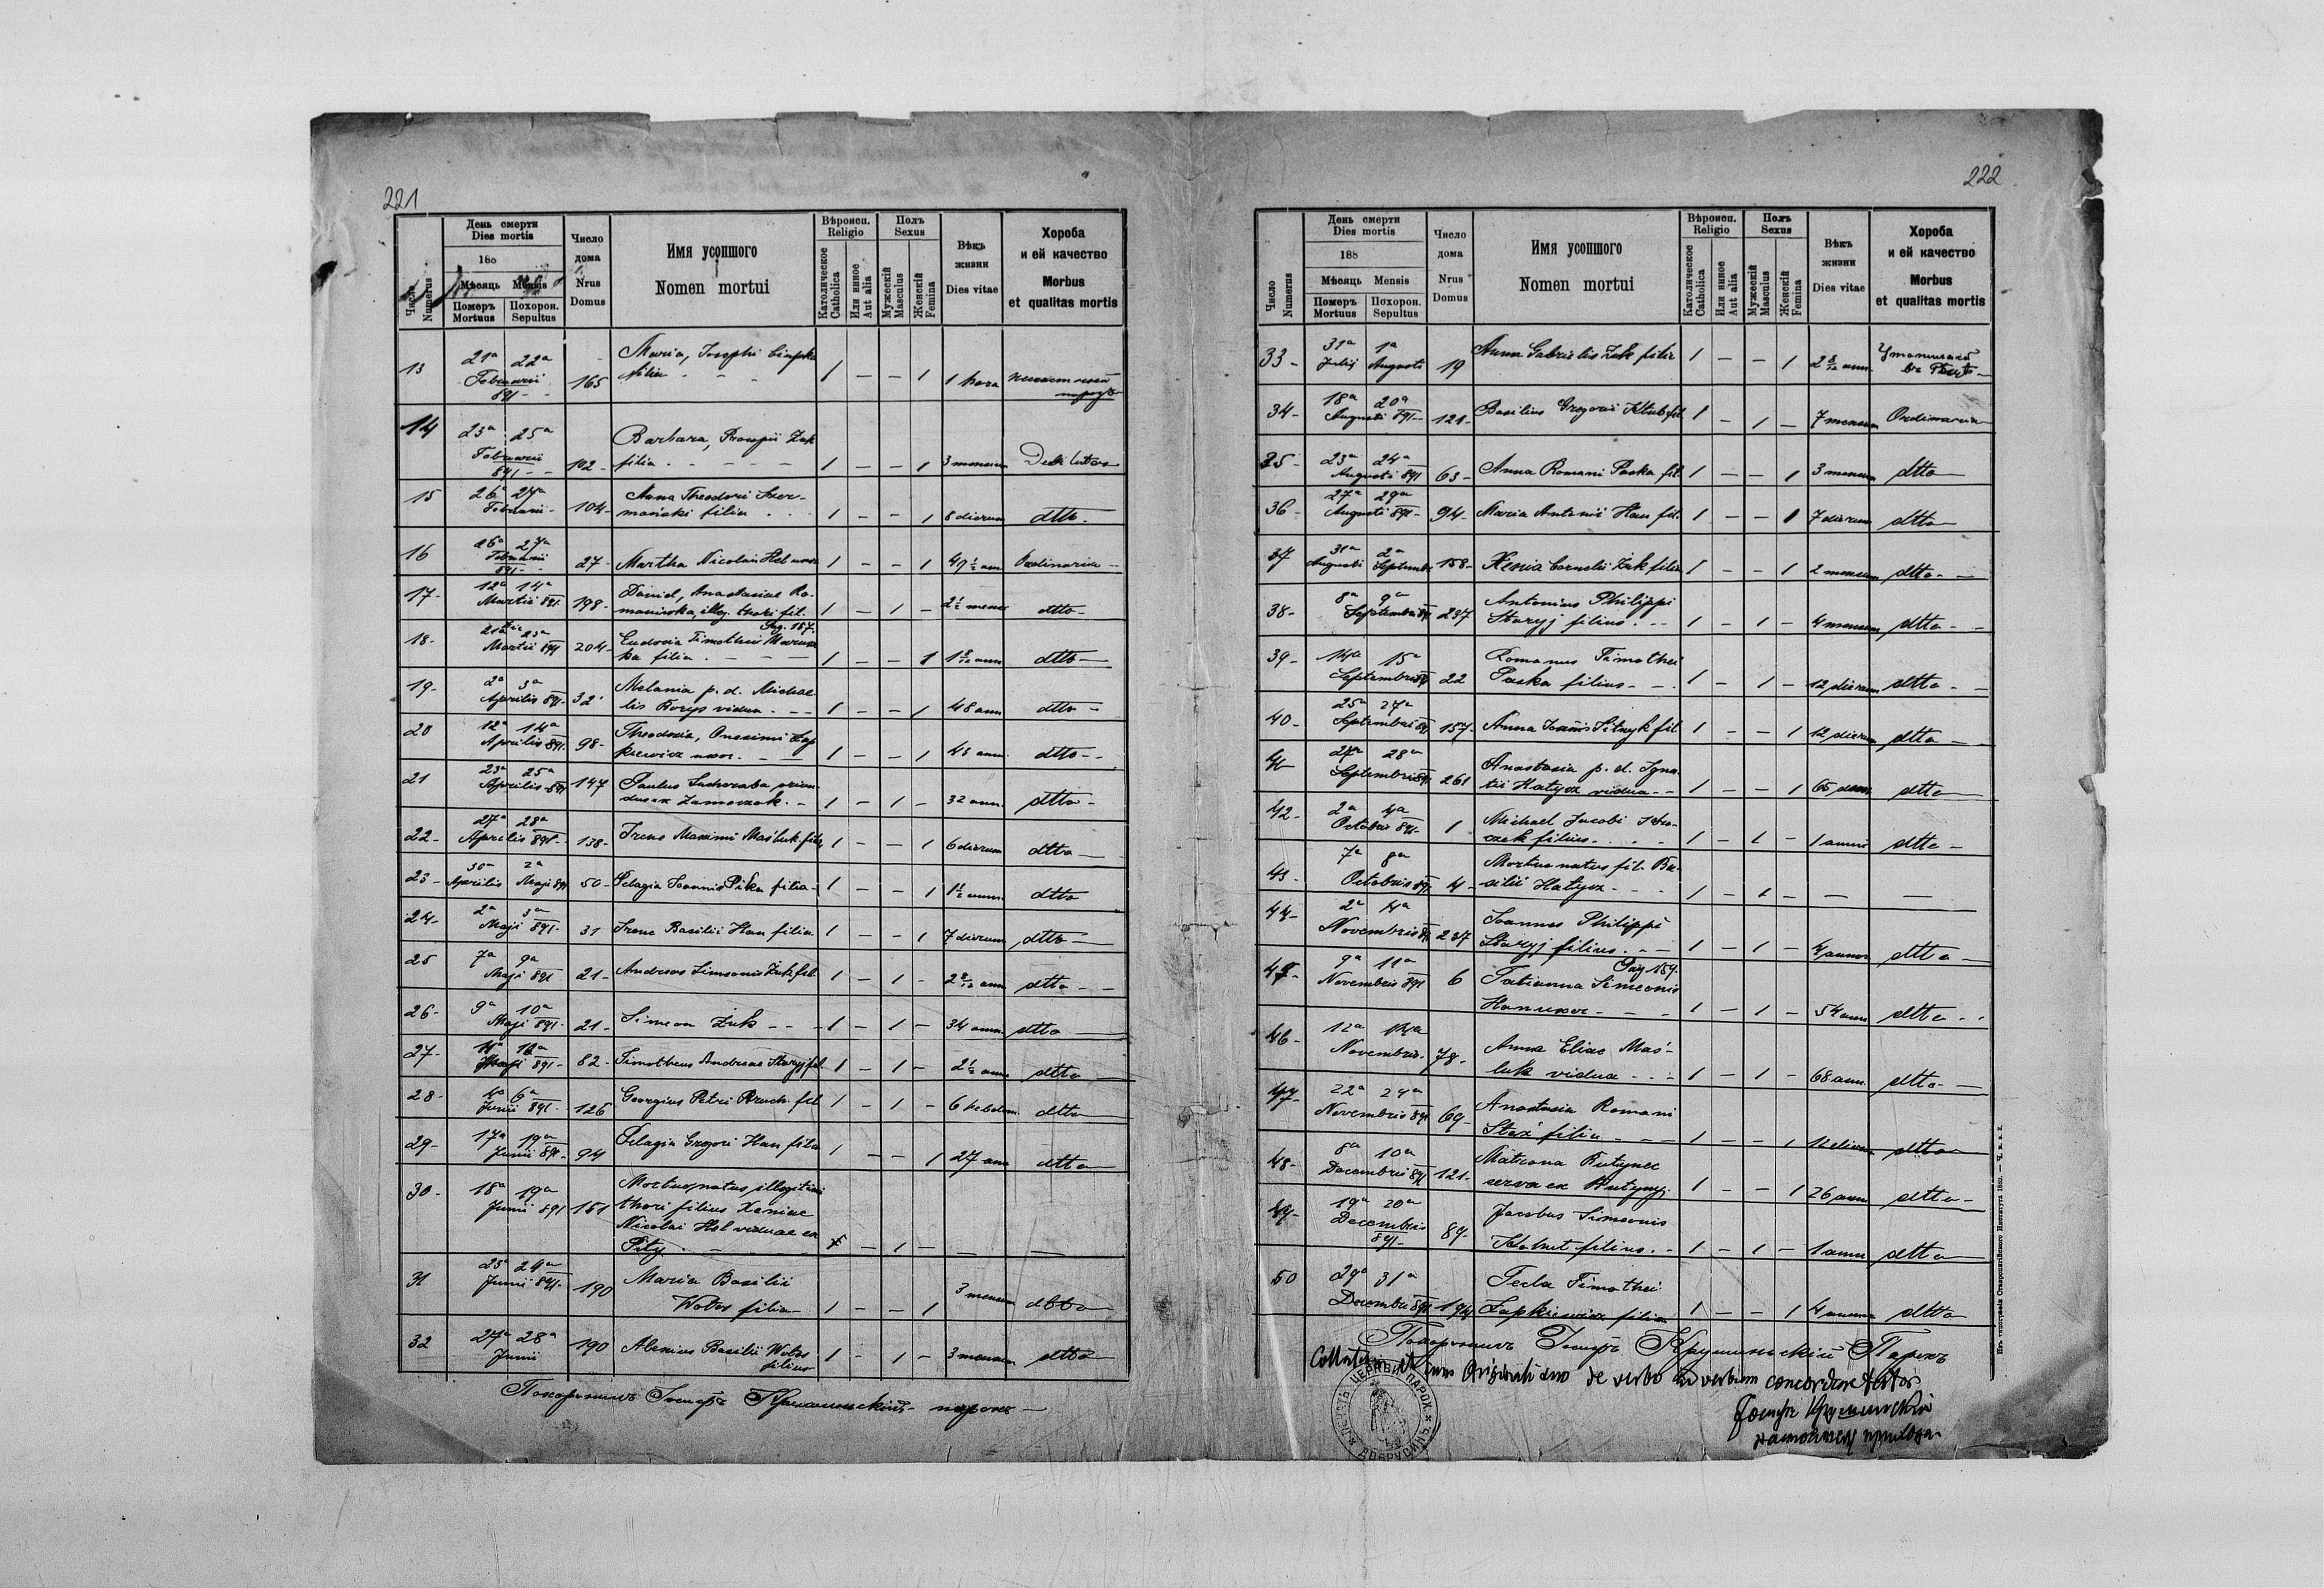 221
День смерти
Dies mortis
188
Мѣсяць Mensis
Померъ Похорон.
Mortuus Sepultus
Число
Numerus
Число
дома
Nrus
Domus
Имя усопшого
Nomen mortui
Вѣроисп.
Religio
Католическое
Catholica
Или инное
Aut alia
Полъ
Sexus
Мужескій
Masculus
Женскій
Femina
Вѣкъ
жизни
Dies vitae
Хороба
и ей качество
Morbus
et qualitas mortis
13 21ª 22ª Februarii 891 165 Maria, Josephi
filia 1 – – 1 1 hora
14 23ª 25ª Februarii 891 102 Barbara, Procopii Żuk
filia 1 – – 1 3 mensium Debilitas
15 26ª 27ª Februarii 104 Anna Theodori Szer-
mański filia 1 – – 1 8 dierum dtto
16 26ª 27ª Februarii 891 27 Martha Nicolai Hel uxor 1 – – 1 49 ½ ann Ordinaria
17 12ª 14ª Martii 891 198 Daniel, Anastasiae Ro-
maniwska, illeg. thori fil. 1 – 1 – 2 ½ mens dtto
18 21ª 23ª Martii 891 204 Eudoxia Timothei
ka filia 1 – – 1 dtto
19 2ª 3ª Aprilis 891 32 Melania p. d. Michae-
lis Borys vidua 1 – – 1 48 ann dtto
20 12ª 14ª Aprilis 891 98 Theodosia, Onesimi Łap
kiewicz uxor 1 – – 1 45 ann. dtto
21 23ª 25ª Aprilis 891 147 Paulus Suchoraba oriun-
dus ex Zamoczek 1 – 1 – 32 ann. dtto
22 27ª 28ª Aprilis 891 138 Irene Maximi Maśluk filia 1 – – 1 6 dierum dtto
23 30ª Aprilis 2ª Maji 891 50 Pelagia Ioannis Pika filia 1 – – 1 1 ½ ann dtto
24 2ª 3ª Maji 891 31 Irene Basilii Han filia 1 – – 1 7 dierum dtto
25 7ª 9ª Maji 891 21 Andreas Simeonis Żuk fil. 1 – 1 – dtto
26 9ª 10ª Maji 891 21 Simeon Żuk 1 – 1 – 34 ann dtto
27 Maji 891 82 Timotheus Andreae Staryj fil. 1 – 1 – 2 ½ ann dtto
28 4ª 6ª Junii 891 126 Georgius Petri Bruch fil 1 – 1 – 6 hebdom. dtto
29 17ª 19ª Junii 891 94 Pelagia Gregorii Han filia 1 – – 1 27 ann dtto
30 18ª 19ª Junii 891 151 Mortuo natus illegitimi
thori filius Xeniae
Nicolai Hel viduae ex
Pily 1 – 1 – — —
31 23ª 24ª Junii 891 190 Maria Basilii
Wotos filia 1 – – 1 3 mensium dtto
32 27ª 28ª Junii 190 Alexius Basilii Wotos
filius 1 – 1 – 3 mensium dtto
Похоронилъ Іосифъ парохъ
222
День смерти
Dies mortis
188
Мѣсяць Mensis
Померъ Похорон.
Mortuus Sepultus
Число
Numerus
Число
дома
Nrus
Domus
Имя усопшого
Nomen mortui
Вѣроисп.
Religio
Католическое
Catholica
Или инное
Aut alia
Полъ
Sexus
Мужескій
Masculus
Женскій
Femina
Вѣкъ
жизни
Dies vitae
Хороба
и ей качество
Morbus
et qualitas mortis
33 31ª Julij 1ª Augusti 19 Anna Gabrielis Żuk filia 1 – – 1
34 18ª 20ª Augusti 891 121 Basilius Gregorii fil 1 – 1 – 7 mensium Ordinaria
35 23ª 24ª Augusti 891 63 Anna Romani Paska fil. 1 – – 1 3 mensium dtto
36 27ª 29ª Augusti 891 94 Maria Antonii Han fil. 1 – – 1 7 dierum dtto
37 31ª Augusti 2ª Septembr 158 Xenia Cornelii Żuk filia 1 – – 1 2 mensium dtto
38 8ª 9ª Septembris 891 237 Antonius Philippi
Staryj filius 1 – 1 – 4 mensium dtto
39 14ª 15ª Septembris 891 22 Romanus Timothei
Paska filius 1 – 1 – 12 dierum dtto
40 25ª 27ª Septembris 891 157 Anna Ioannis Sitnyk fil. 1 – – 1 12 dierum dtto
41 27ª 28ª Septembris 891 261 Anastasia p. d. Igna-
tii Hatycz vidua 1 – – 1 65 ann dtto
42 2ª 4ª Octobris 891 1 Michael Jacobi
czek filius 1 – 1 – 1 anni dtto
43 7ª 8ª Octobris 891 4 Mortuo natus fil. Ba-
silii Hatycz 1 – 1 – — —
44 2ª 4ª Novembris 891 237 Ioannes Philippi
Staryj filius 1 – 1 – 4 annor dtto
45 9ª 11ª Novembris 891 6 Pag 159. Tatianna Simeonis
Han uxor 1 – 1 – 54 ann dtto
46 12ª 14ª Novembris 78 Anna Eliae Maś-
luk vidua 1 – 1 – 68 ann. dtto
47 22ª 24ª Novembris 891 69 Anastasia Romani
filia 1 – – 1 12 dierum dtto
48 8ª 10ª Decembris 891 121 Matrona Butynec
serva ex Butyny 1 – – 1 26 ann dtto
49 19ª 20ª Decembris 891 89 Jacobus Simeonis
filius 1 – 1 – 1 anni dtto
50 29ª 31ª Decembris 891 194 Tecla Timothei
Łapkiewicz filia 1 – – 1 4 dtto
Похоронилъ Іосифъ Парохъ
Collatum et cum Originali suo de verbo ad verbum concordare testor
Іосифъ
Изъ типографіи Ставропигійского Института 1889.